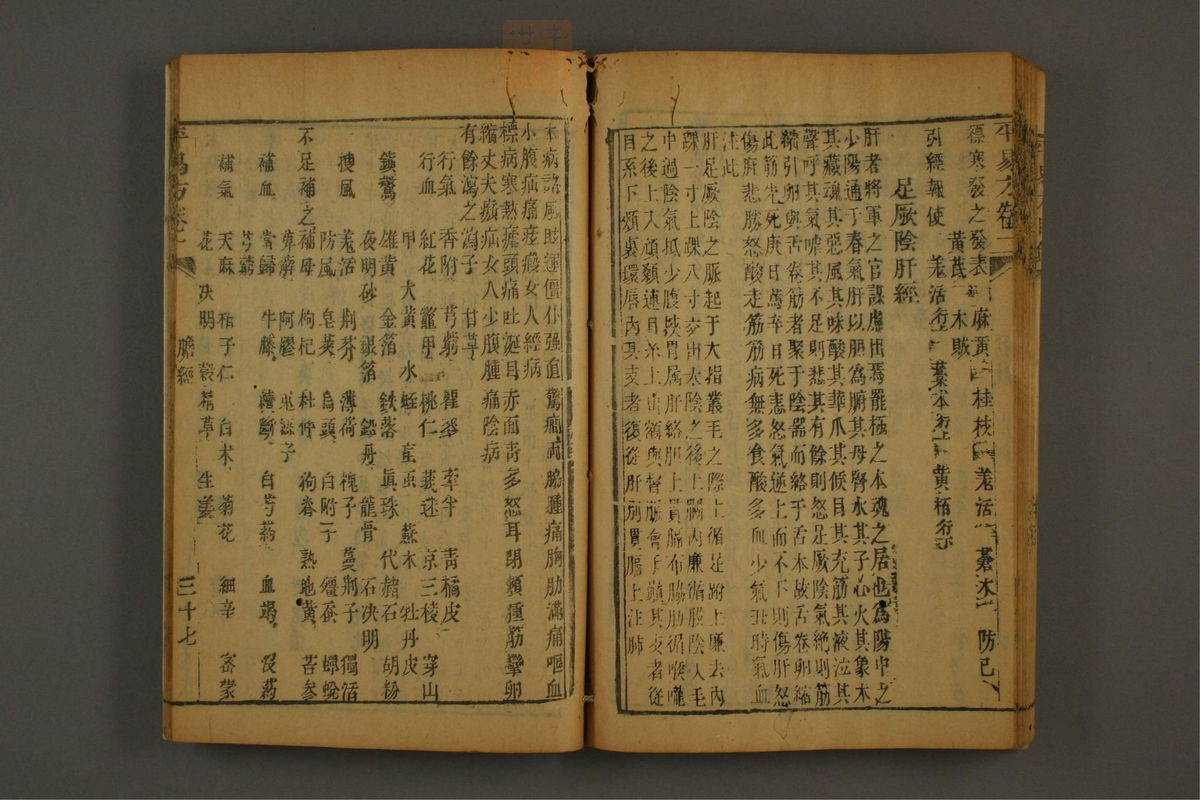 標寒發之發表 麻黃 桂枝 羌活 蒼朮 防己
黃芪 木賊
引經報使 羌活行上 藁本行上 黃栢行下
足厥陰肝經
肝者將軍之官謀慮出焉罷極之本魂之居也為陽中之
少陽通于春氣肝以胆為腑其母腎水其子心火其象木
其藏魂其惡風其味酸其華爪其候目其充筋其液泣其
聲呼其氣嘘其不足則悲其有餘則怒足厥陰氣絶則筋
縮引卵與舌卷筋者聚于陰器而絡于舌本故舌卷卵縮
此筋先死庚日篤辛日死悲怒氣逆上而不下則傷肝怒
傷肝悲勝怒酸走筋筋病無多食酸多血少氣丑時氣血
注此
肝足厥陰之脈起于大指叢毛之際上循足跗上廉去內
踝一寸上踝八寸交出太陰之後上膕內廉循股陰入毛
中過陰氣抵少腹挾胃属肝絡胆上貫膈布脇肋循喉嚨
之後上入頑顙連目系上出額與督脈會于巔其支者從
目系下頰裏環唇內其支者復從肝別貫膈上注肺
本病諸風眩運僵仆强直驚癇兩脇腫痛胸肋滿痛嘔血
小腹疝痛痃癥女人經病
標病寒熱瘧頭痛吐涎目赤面靑多怒耳閉頰腫筋攣卵
縮丈夫㿗疝女人少腹腫痛陰病
有餘瀉之瀉子 甘草
行氣 香附 芎藭 瞿麥 牽牛 靑橘皮
行血 紅花 鼈甲 桃仁 莪蒁 京三棱 穿山
甲 大黃 水蛭 䖟虫 蘇木 牡丹皮
鎭驚 雄黃 金箔 鉄落 眞珠 代赭石 胡粉
夜明砂 銀箔 鉛丹 龍骨 石决明
搜風 羌活 荆芥 薄荷 槐子 蔓荆子 獨活
防風 皂莢 烏頭 白附子 殭蚕 蟬蛻
不足補之 補母 枸杞 杜仲 狗脊 熟地黃 苦參
萆薢 阿膠 兎絲子
補血 當歸 牛膝 續斷 白芍藥 血竭 沒藥
芎藭
補氣 天麻 栢子仁 白朮 菊花 細辛 密蒙
花 决明 榖精草 生姜
平易方卷二 膽經 三十七